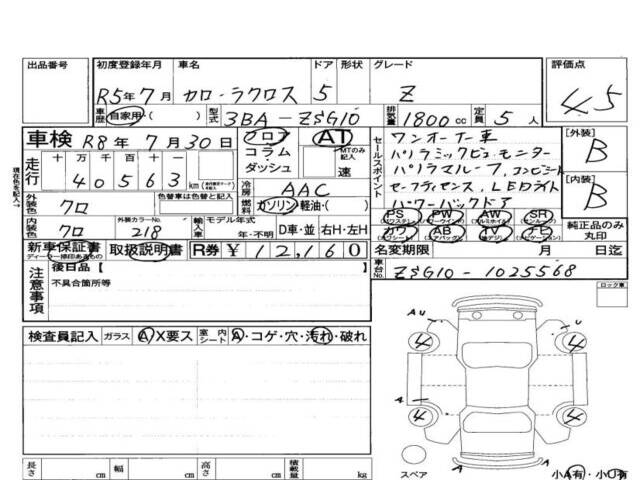 出品番号 初度登録年月 車名 ドア 形状 グレード 評価点
R5年7月 カローラクロス 5 Z 4.5
車歴 自家用・( ) 型式 3BA-ZSG10 排気量 1800cc 定員 5人
車検 R8年7月30日 フロア AT
コラム MTのみ記入
ダッシュ 速
走行 十万千百十一
40563 km
冷房 AAC
外装色 クロ 色替車は色替と記入 燃料 ガソリン 軽油・( )
内装色 クロ 外装カラーNo. 218 輸入車 モデル年式 年・不明 D車・並 右H・左H
新車保証書 取扱説明書 R券 ¥12,160
ディーラー捺印あるもの
セールスポイント ワンオーナー車
パノラミックビューモニター
パノラマルーフ、コンビシート
セーフティセンス、LEDライト
パワーバックドア
PS PW AW SR
カワ AB TV
[外装] B
[内装] B
純正品のみ丸印
名変期限 月 日迄
車台No. ZSG10-1025568
注意事項 後日品【
不具合箇所等
ロック車
検査員記入 ガラス A X要ス 室内シート A・コゲ・穴・汚れ・破れ
AU U
4 4
A A
4 4
スペア 小A有・小U有
長さ cm 幅 cm 高さ cm 積載量 kg
現在色を記入